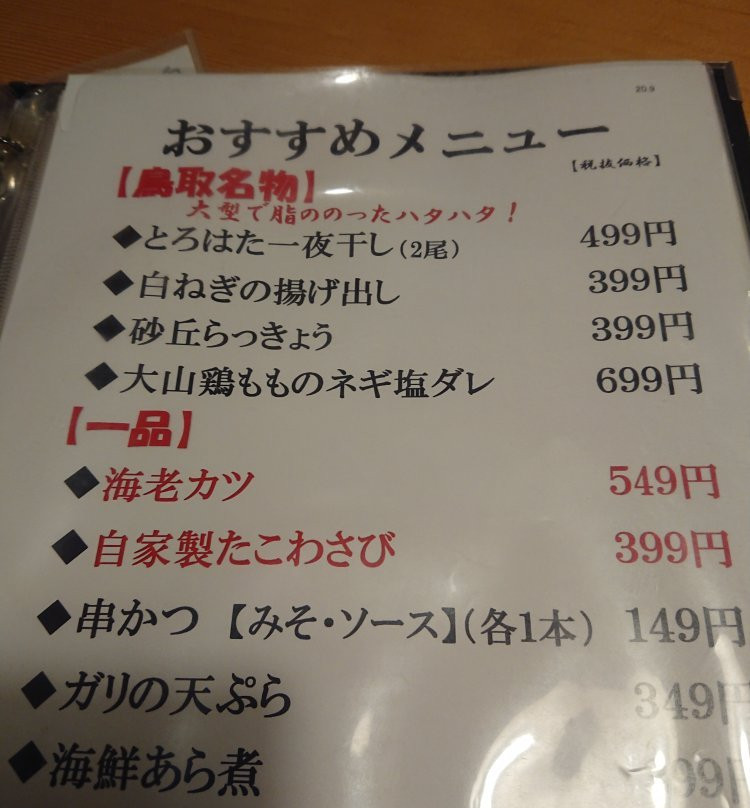 20.9
おすすめメニュー
【税抜価格】
【鳥取名物】
大型で脂ののったハタハタ！
◆とろはた一夜干し（2尾） 499円
◆白ねぎの揚げ出し 399円
◆砂丘らっきょう 399円
◆大山鶏もものネギ塩ダレ 699円
【一品】
◆海老カツ 549円
◆自家製たこわさび 399円
◆串かつ【みそ・ソース】（各1本） 149円
◆ガリの天ぷら 349円
◆海鮮あら煮 99円